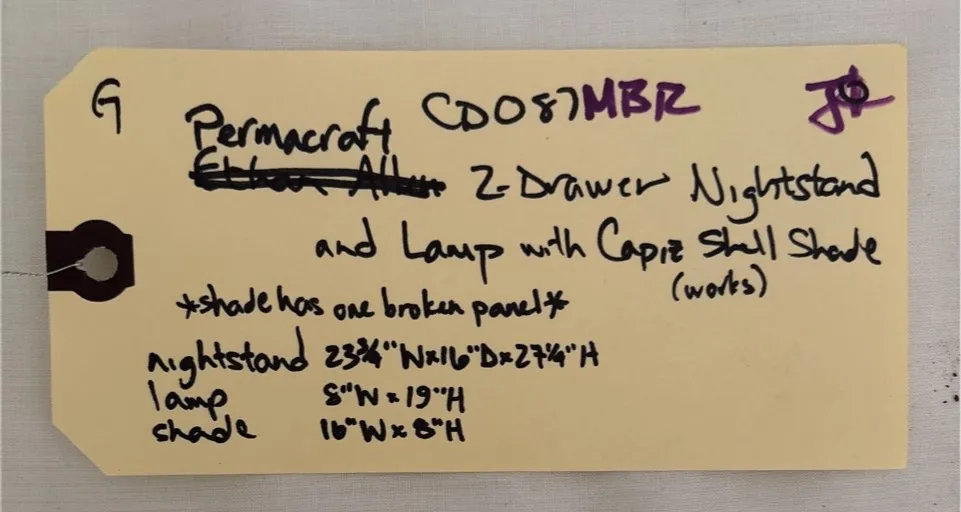 G
CD087MBR
Permacraft
Ethan Allen 2-Drawer Nightstand
and Lamp with Capiz Shell Shade
(works)
*shade has one broken panel*
nightstand 23¾"W x 16"D x 27¼"H
lamp 8"W x 19"H
shade 16"W x 8"H